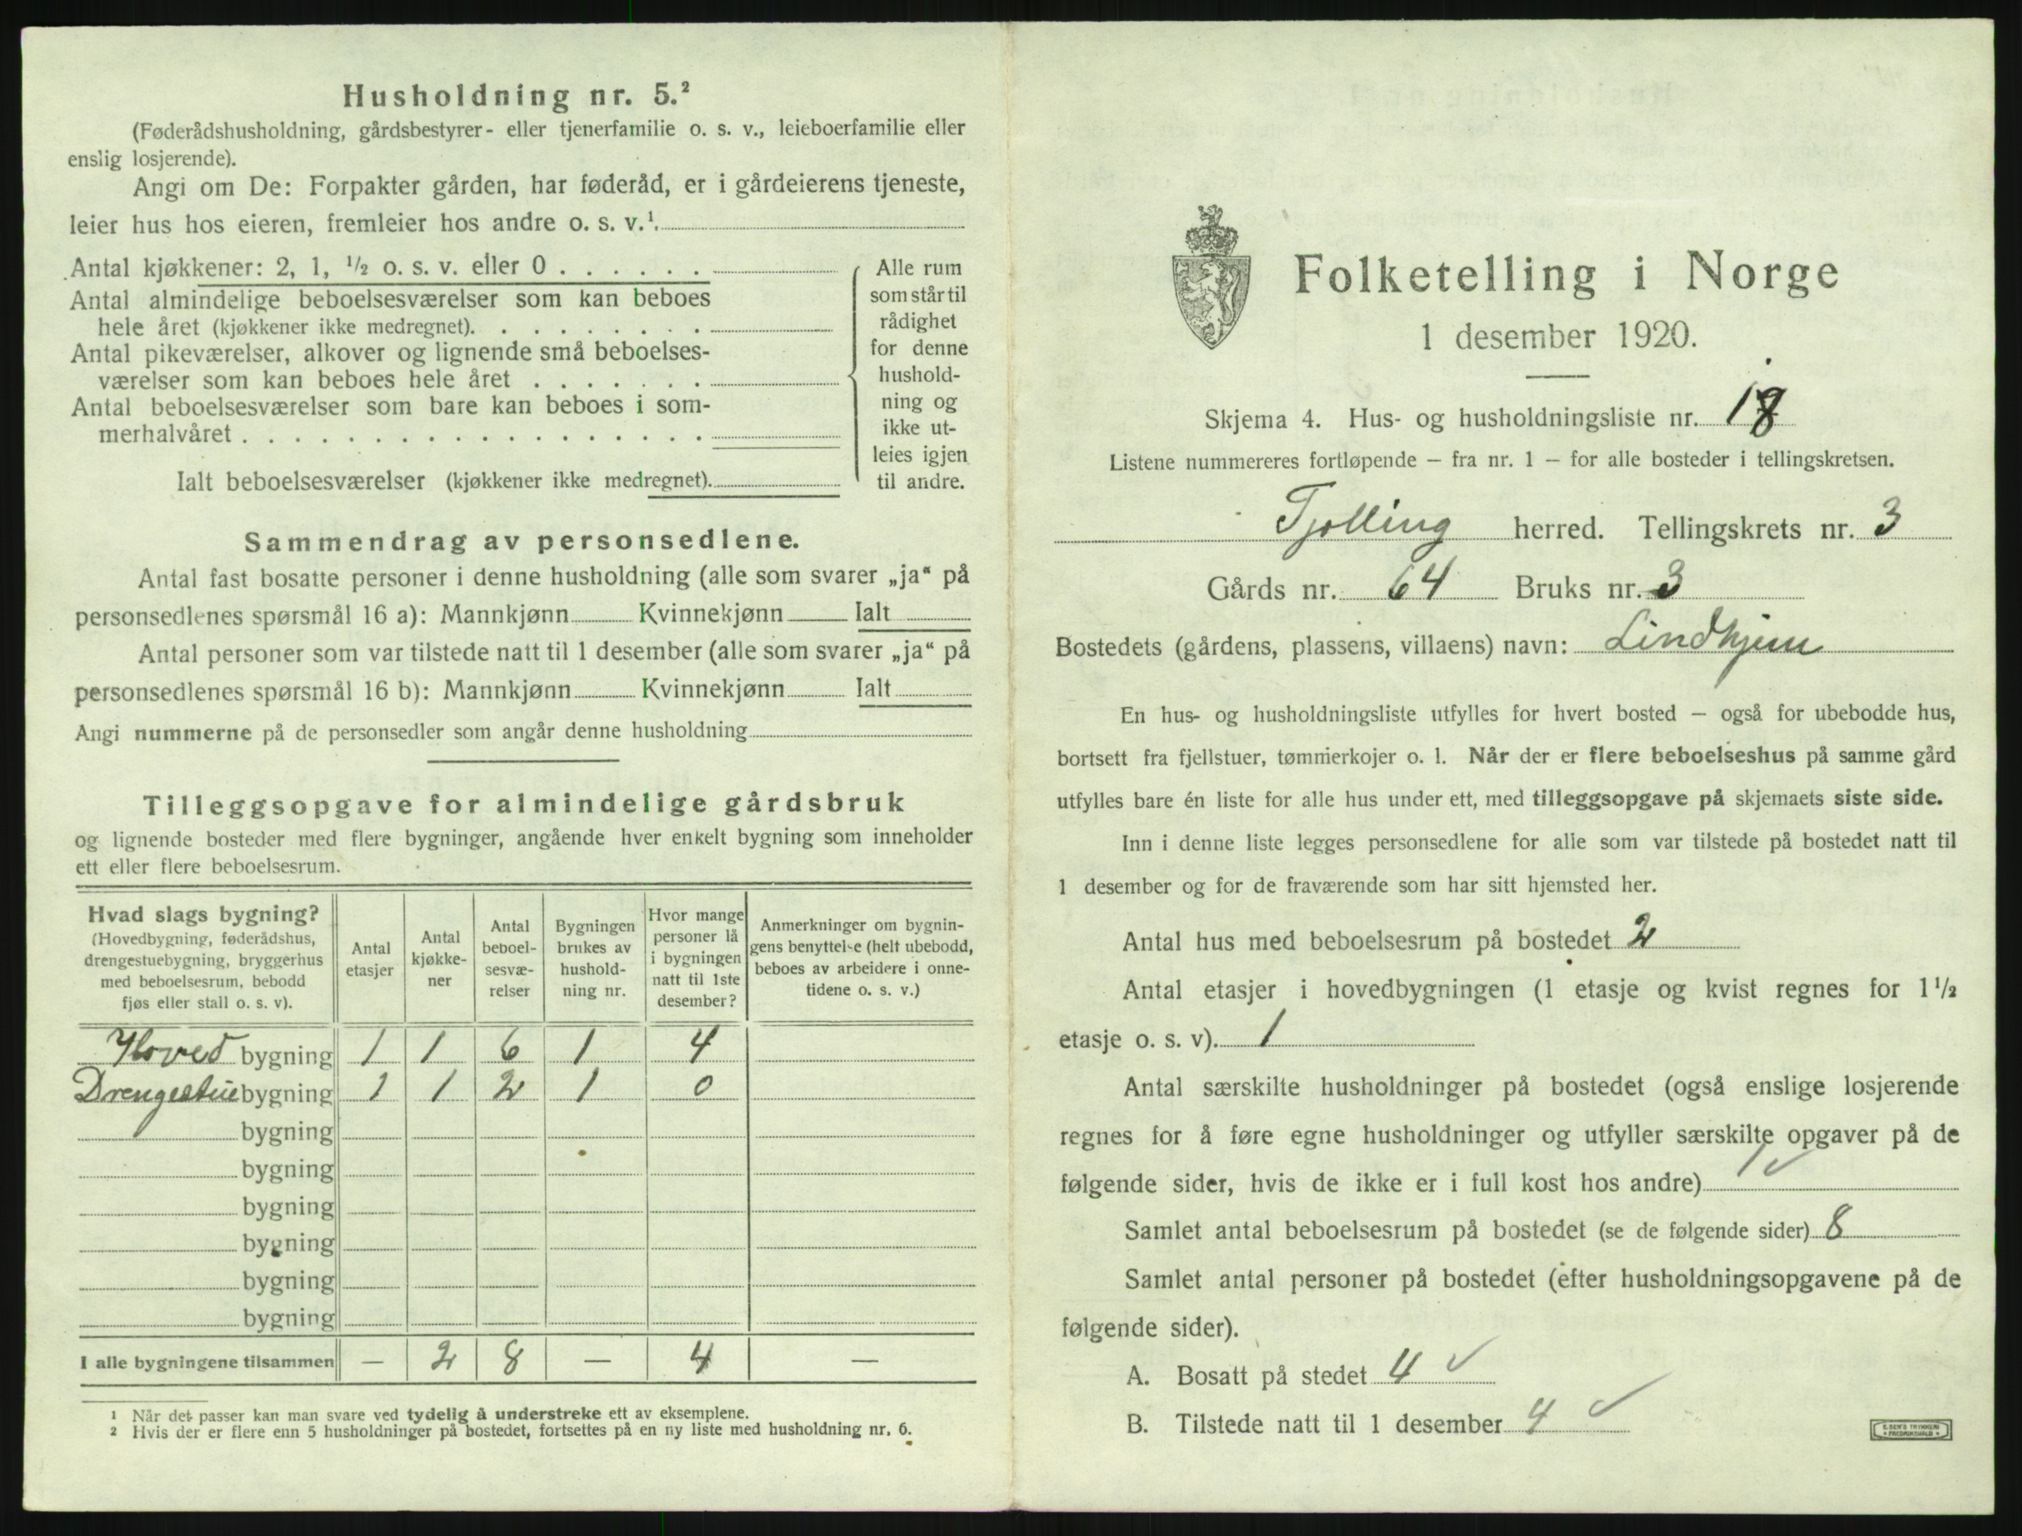 Husholdning nr. 5.²
(Føderådshusholdning, gårdsbestyrer- eller tjenerfamilie o. s. v., leieboerfamilie eller
enslig losjerende).
Angi om De: Forpakter gården, har føderåd, er i gårdeierens tjeneste,
leier hus hos eieren, fremleier hos andre o. s. v.¹.
Antal kjøkkener: 2, 1, ½ o. s. v. eller 0 . . . . . .
Antal almindelige beboelsesværelser som kan beboes
hele året (kjøkkener ikke medregnet). . . . . . . . .
Antal pikeværelser, alkover og lignende små beboelses-
værelser som kan beboes hele året . . . . . . .
Antal beboelsesværelser som bare kan beboes i som-
merhalvåret . . . . . . . . . . . . . . . . . .
Ialt beboelsesværelser (kjøkkener ikke medregnet).
Alle rum
som står til
rådighet
for denne
hushold-
ning og
ikke ut-
leies igjen
til andre.
Sammendrag av personsedlene.
Antal fast bosatte personer i denne husholdning (alle som svarer „ja“ på
personsedlenes spørsmål 16 a): Mannkjønn Kvinnekjønn Ialt
Antal personer som var tilstede natt til 1 desember (alle som svarer „ja“ på
personsedlenes spørsmål 16 b): Mannkjønn Kvinnekjønn Ialt
Angi nummerne på de personsedler som angår denne husholdning
Tilleggsopgave for almindelige gårdsbruk
og lignende bosteder med flere bygninger, angående hver enkelt bygning som inneholder
ett eller flere beboelsesrum.
Hvad slags bygning?
(Hovedbygning, føderådshus,
drengestuebygning, bryggerhus
med beboelsesrum, bebodd
fjøs eller stall o. s. v).
Antal
etasjer
Antal
kjøkke-
ner
Antal
beboel-
sesvæ-
relser
Bygningen
brukes av
hushold-
ning nr.
Hvor mange
personer lå
i bygningen
natt til 1ste
desember?
Anmerkninger om bygnin-
gens benyttelse (helt ubebodd,
beboes av arbeidere i onne-
tidene o. s. v.)
Hoved bygning 1 1 6 1 4
Drengestue bygning 1 1 2 1 0
bygning
bygning
bygning
bygning
bygning
bygning
I alle bygningene tilsammen — 2 8 — 4 —
¹ Når det passer kan man svare ved tydelig å understreke ett av eksemplene.
² Hvis der er flere enn 5 husholdninger på bostedet, fortsettes på en ny liste med husholdning nr. 6.
Folketelling i Norge
1 desember 1920.
Skjema 4. Hus- og husholdningsliste nr. 18
Listene nummereres fortløpende – fra nr. 1 – for alle bosteder i tellingskretsen.
Tjølling herred. Tellingskrets nr. 3
Gårds nr. 64 Bruks nr. 3
Bostedets (gårdens, plassens, villaens) navn: Lindhjem
En hus- og husholdningsliste utfylles for hvert bosted – også for ubebodde hus,
bortsett fra fjellstuer, tømmerkojer o. l. Når der er flere beboelseshus på samme gård
utfylles bare én liste for alle hus under ett, med tilleggsopgave på skjemaets siste side.
Inn i denne liste legges personsedlene for alle som var tilstede på bostedet natt til
1 desember og for de fraværende som har sitt hjemsted her.
Antal hus med beboelsesrum på bostedet 2
Antal etasjer i hovedbygningen (1 etasje og kvist regnes for 1½
etasje o. s. v). 1
Antal særskilte husholdninger på bostedet (også enslige losjerende
regnes for å føre egne husholdninger og utfyller særskilte opgaver på de
følgende sider, hvis de ikke er i full kost hos andre) 1 ✓
Samlet antal beboelsesrum på bostedet (se de følgende sider) 8
Samlet antal personer på bostedet (efter husholdningsopgavene på de
følgende sider).
A. Bosatt på stedet 4 ✓
B. Tilstede natt til 1 desember 4 ✓